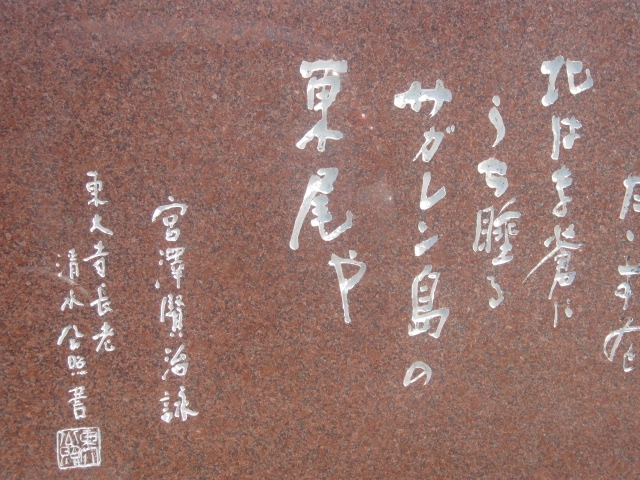 北はま蒼に
うち睡る
サガレン島の
東尾や
宮澤賢治詠
東大寺長老
清水公照書